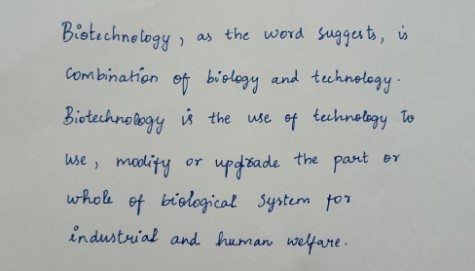 Biotechnology, as the word suggests, is
Combination of biology and technology.
Biotechnology is the use of technology to
use, modify or upgrade the part or
whole of biological system for
industrial and human welfare.